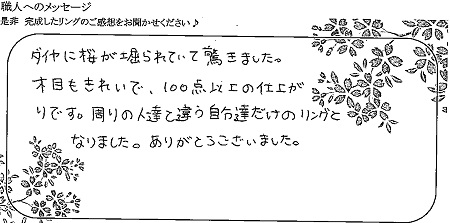 職人へのメッセージ
是非 完成したリングのご感想をお聞かせください♪
ダイヤに桜が堀られていて驚きました。
木目もきれいで、100点以上の仕上が
りです。周りの人達と違う自分達だけのリングと
なりました。ありがとうございました。